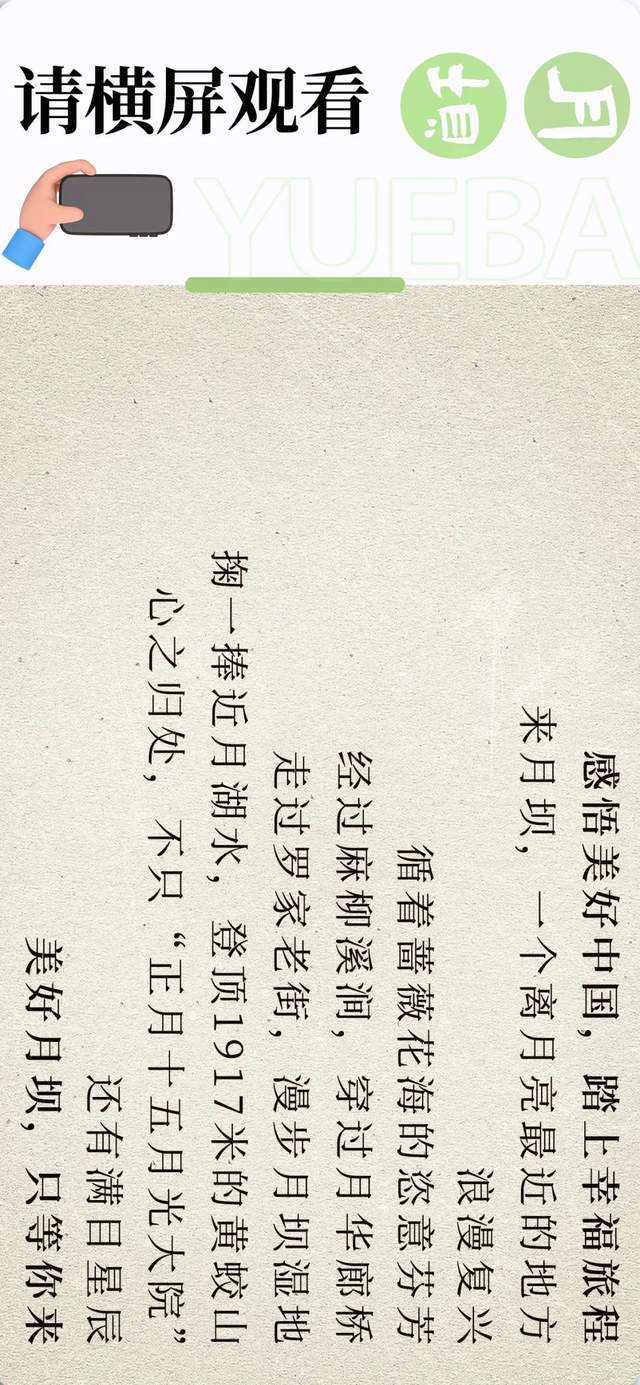 请横屏观看
月坝
YUEBA
感悟美好中国，踏上幸福旅程
来月坝，一个离月亮最近的地方
浪漫复兴
循着蔷薇花海的恣意芬芳
经过麻柳溪涧，穿过月华廊桥
走过罗家老街，漫步月坝湿地
掬一捧近月湖水，登顶1917米的黄蛟山
心之归处，不只“正月十五月光大院”
还有满目星辰
美好月坝，只等你来